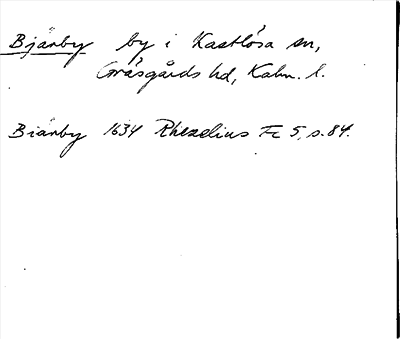 Bjärby by i Kastlösa sn,
Gräsgårds hd, Kalm. l.
Biärby 1634 Rhezelius Fc 5, s. 84.